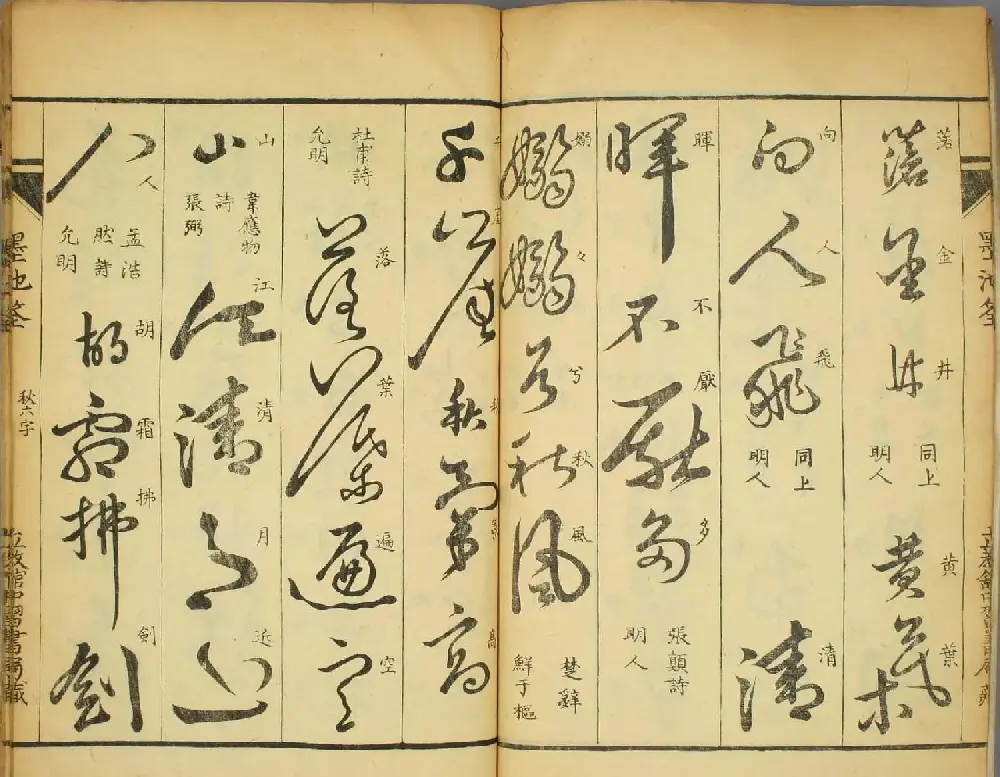 落金井
同上
明人
黄葉
向人飛
同上
明人
清
暉不厭多
張顛詩
明人
嫋嫋兮秋風
楚辭
鮮于樞
千崖秋氣高
杜甫詩
允明
落葉遍空
山
韋應物
詩
張弼
江清月近
人
孟浩
然詩
允明
胡霜拂劍
秋六字